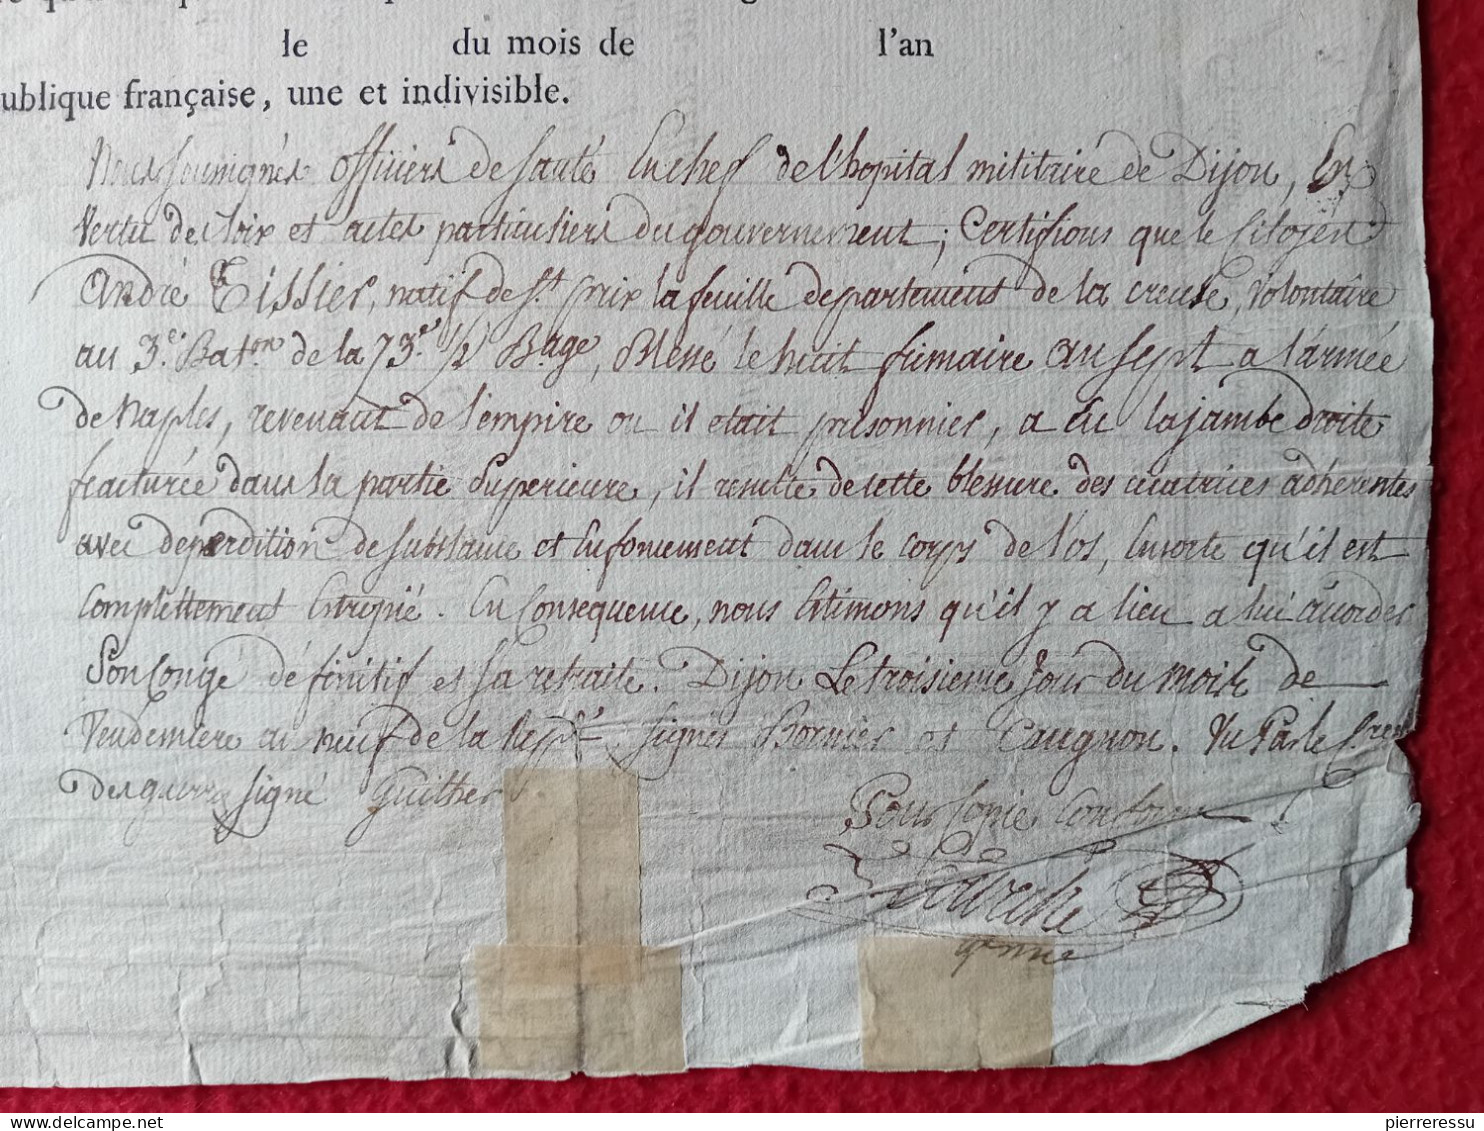 le du mois de l'an
ublique française, une et indivisible.
Nous soussignés officiers de santé en chef de l'hopital militaire de Dijon, En
vertu des loix et actes particuliers du gouvernement; Certifions que le Citoyen
André Tissier, natif de St. prix la feuille departement de la creuse, volontaire
au 3.e Bat.on de la 73.e 1/2 B.age, Blessé le huit frimaire an sept a l'armée
de Naples, revenant de l'empire ou il etait prisonnier, a eu la jambe droite
fracturée dans la partie Superieure, il resulte de cette blessure des cicatrices adhérentes
avec deperdition de substance et Enfoncement dans le corps de l'os, Ensorte qu'il est
Complettement Estropié. En Consequence, nous Estimons qu'il y a lieu a lui accorder
Son Congé définitif et sa retraite. Dijon Le troisieme Jour du mois de
Vendemiere an neuf de la Rep.e signés Bornier et Caugnon. Vu Par le
des guerres signé Guither
Pour Copie Conforme
pierreressu